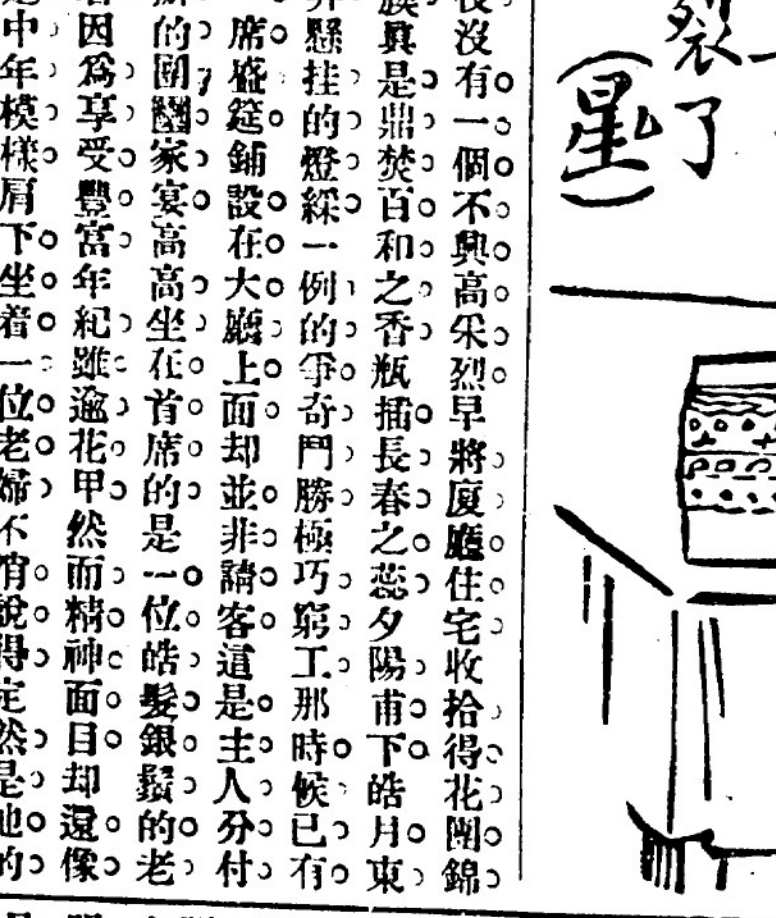 裂了
(星)
沒有一個不興高采烈早將廈廳住宅收拾得花團錦
簇眞是鼎焚百和之香瓶插長春之蕊夕陽甫下皓月東
懸挂的燈綵一例的爭奇鬥勝極巧窮工那時候已有
席盛筵鋪設在大廳上面却並非請客這是主人分付
的團圞家宴高高坐在首席的是一位皓髮銀鬚的老
因爲享受豐富年紀雖逾花甲然而精神面目却還像
中年模樣肩下坐着一位老婦不消說得定然是他的